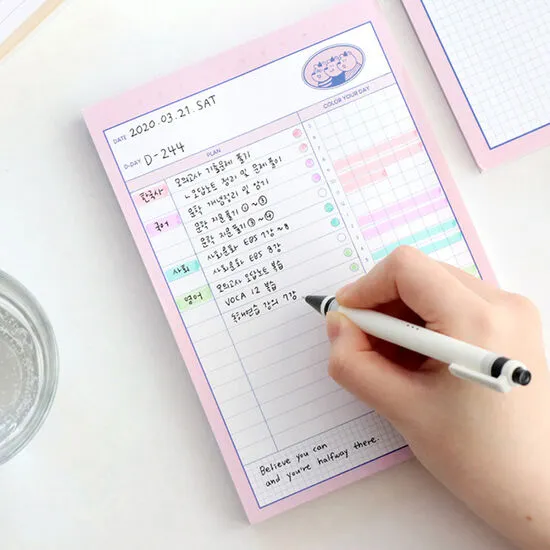 COLOR YOUR DAY
DATE 2020.03.21. SAT
D-DAY D-244
PLAN
한국사 모의고사 기출문제 풀기
ㄴ 오답노트 정리 및 문제풀이
국어 문학 개념정리 및 암기
문학 지문풀기 ①~②
문학 지문풀기 ③~④
사회 사회문화 EBS 7강~8
사회문화 EBS 8강
영어 모의고사 오답노트 복습
VOCA 12 복습
독해연습 강의 7강
Believe you can
and you're halfway there.